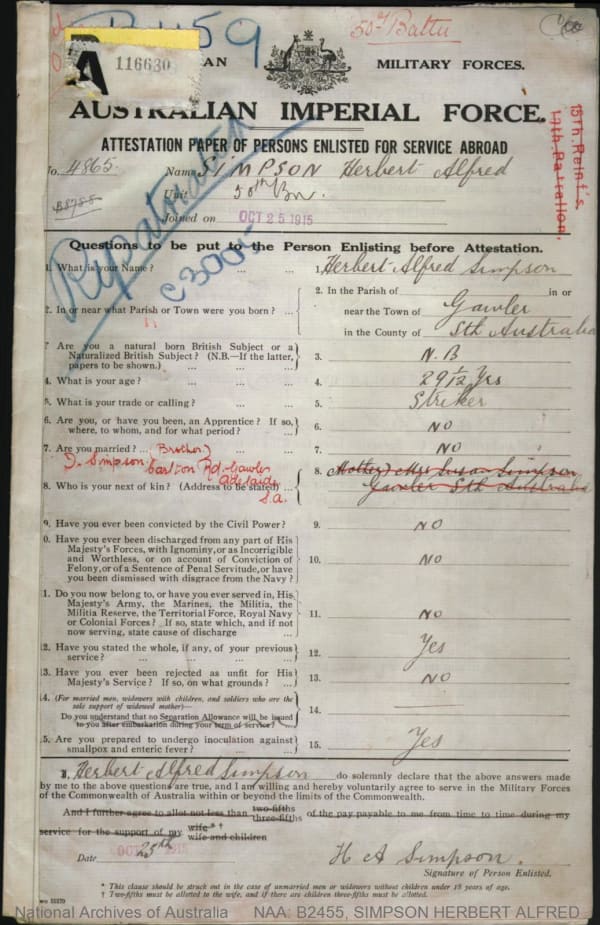 50th Battn
116630
MILITARY FORCES.
AUSTRALIAN IMPERIAL FORCE.
ATTESTATION PAPER OF PERSONS ENLISTED FOR SERVICE ABROAD
No. 4865. Name SIMPSON Herbert Alfred
Unit 50th Bn.
Joined on OCT 25 1915
15th Reint's.
Questions to be put to the Person Enlisting before Attestation.
1. What is your Name? ... ... 1. Herbert Alfred Simpson
2. In or near what Parish or Town were you born? ...
2. In the Parish of in or
near the Town of Gawler
in the County of Sth Australia
Are you a natural born British Subject or a
Naturalized British Subject? (N.B.—If the latter,
papers to be shown.) ... ... 3. N.B
4. What is your age? ... ... 4. 29 1/12 Yrs
5. What is your trade or calling? ... ... 5. Striker
6. Are you, or have you been, an Apprentice? If so,
where, to whom, and for what period? ... 6. NO
7. Are you married? ... 7. NO
(Brother)
D. Simpson. Carlton Rd. Gawler
Adelaide
S.A.
8. Who is your next of kin? (Address to be stated) ... 8. (Mother) Mrs Susan Simpson
Gawler Sth Australia
9. Have you ever been convicted by the Civil Power? 9. NO
0. Have you ever been discharged from any part of His
Majesty's Forces, with Ignominy, or as Incorrigible
and Worthless, or on account of Conviction of
Felony, or of a Sentence of Penal Servitude, or have
you been dismissed with disgrace from the Navy? 10. NO
1. Do you now belong to, or have you ever served in, His
Majesty's Army, the Marines, the Militia, the
Militia Reserve, the Territorial Force, Royal Navy
or Colonial Forces? If so, state which, and if not
now serving, state cause of discharge ... 11. NO
2. Have you stated the whole, if any, of your previous
service? ... ... 12. Yes
3. Have you ever been rejected as unfit for His
Majesty's Service? If so, on what grounds? ... 13. NO
4. (For married men, widowers with children, and soldiers who are the
sole support of widowed mother)—
Do you understand that no Separation Allowance will be issued
to you after embarkation during your term of service? 14.
5. Are you prepared to undergo inoculation against
smallpox and enteric fever? ... ... 15. Yes
I, Herbert Alfred Simpson do solemnly declare that the above answers made
by me to the above questions are true, and I am willing and hereby voluntarily agree to serve in the Military Forces
of the Commonwealth of Australia within or beyond the limits of the Commonwealth.
And I further agree to allot not less than two-fifths three-fifths of the pay payable to me from time to time during my
service for the support of my wife*† wife and children
Date 25th
H A Simpson.
Signature of Person Enlisted.
* This clause should be struck out in the case of unmarried men or widowers without children under 18 years of age.
† Two-fifths must be allotted to the wife, and if there are children three-fifths must be allotted.
National Archives of Australia NAA: B2455, SIMPSON HERBERT ALFRED